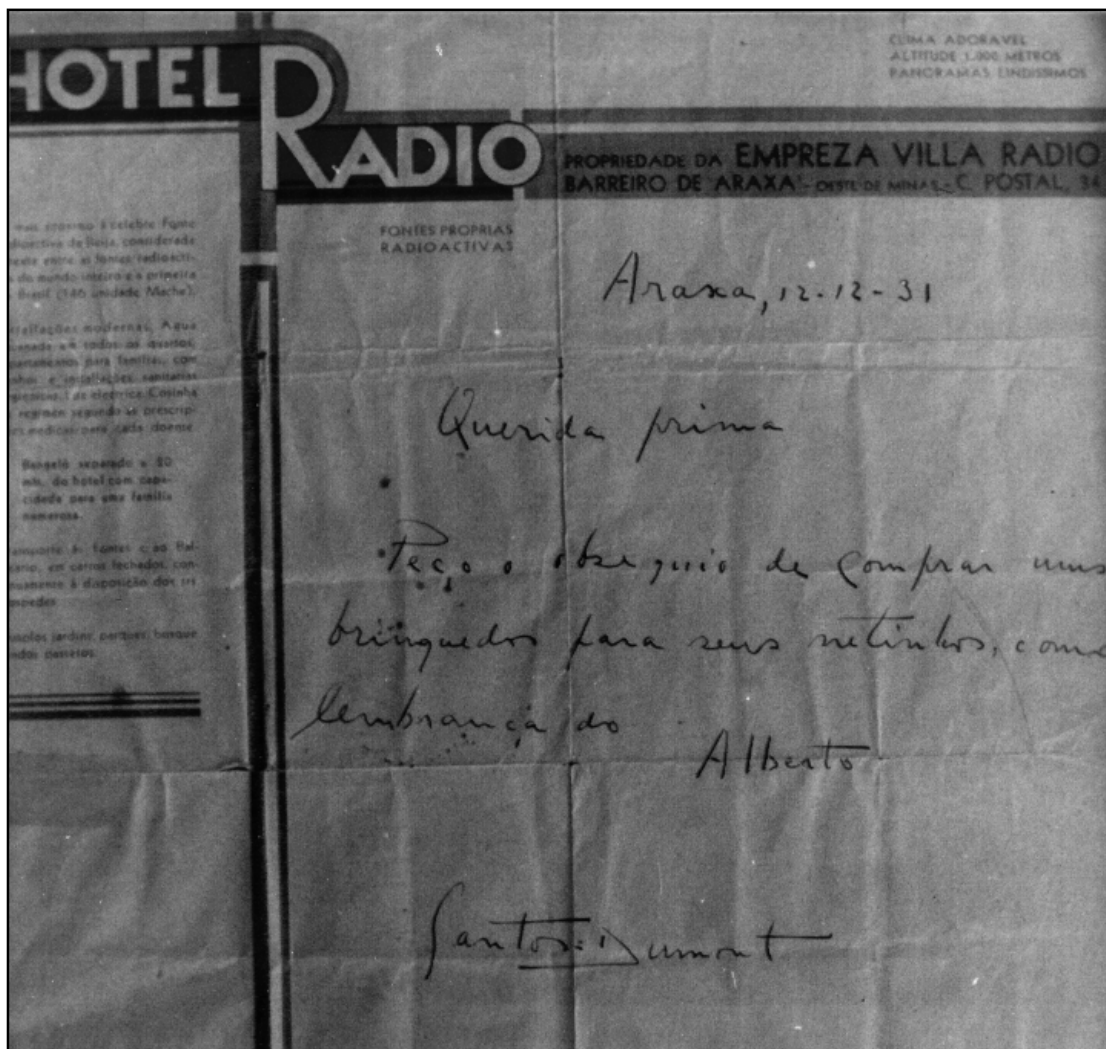 HOTEL RADIO
CLIMA ADORAVEL
ALTITUDE 1.000 METROS
PANORAMAS LINDISSIMOS
PROPRIEDADE DA EMPREZA VILLA RADIO
BARREIRO DE ARAXA' - OESTE DE MINAS - C. POSTAL, 34
FONTES PROPRIAS
RADIOACTIVAS
mais proximo á celebre Fonte
dioactiva de Beija, considerada
entre as fontes radioacti-
s do mundo inteiro e a primeira
Brasil (146 unidade Mache).
tallações modernas. Agua
canada em todos os quartos,
partamentos para familias, com
nhos e installações sanitarias
Luz electrica. Cosinha
regimen segundo as prescrip-
medicas para cada doente.
Bangaló separado a 50
mts. do hotel com capa-
cidade para uma familia
numerosa.
ansporte ás fontes e ao Bal-
eario, em carros fechados, con-
nuamente á disposição dos srs
ospedes.
jardins, parques, bosque
passeios.
Araxa, 12-12-31
Querida prima
Peço o obsequio de comprar uns
brinquedos para seus netinhos, como
lembrança do
Alberto
Santos=Dumont